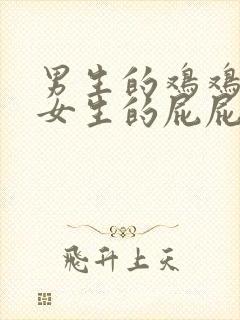 男生的鸡鸡
女生的屁屁
飛升上天